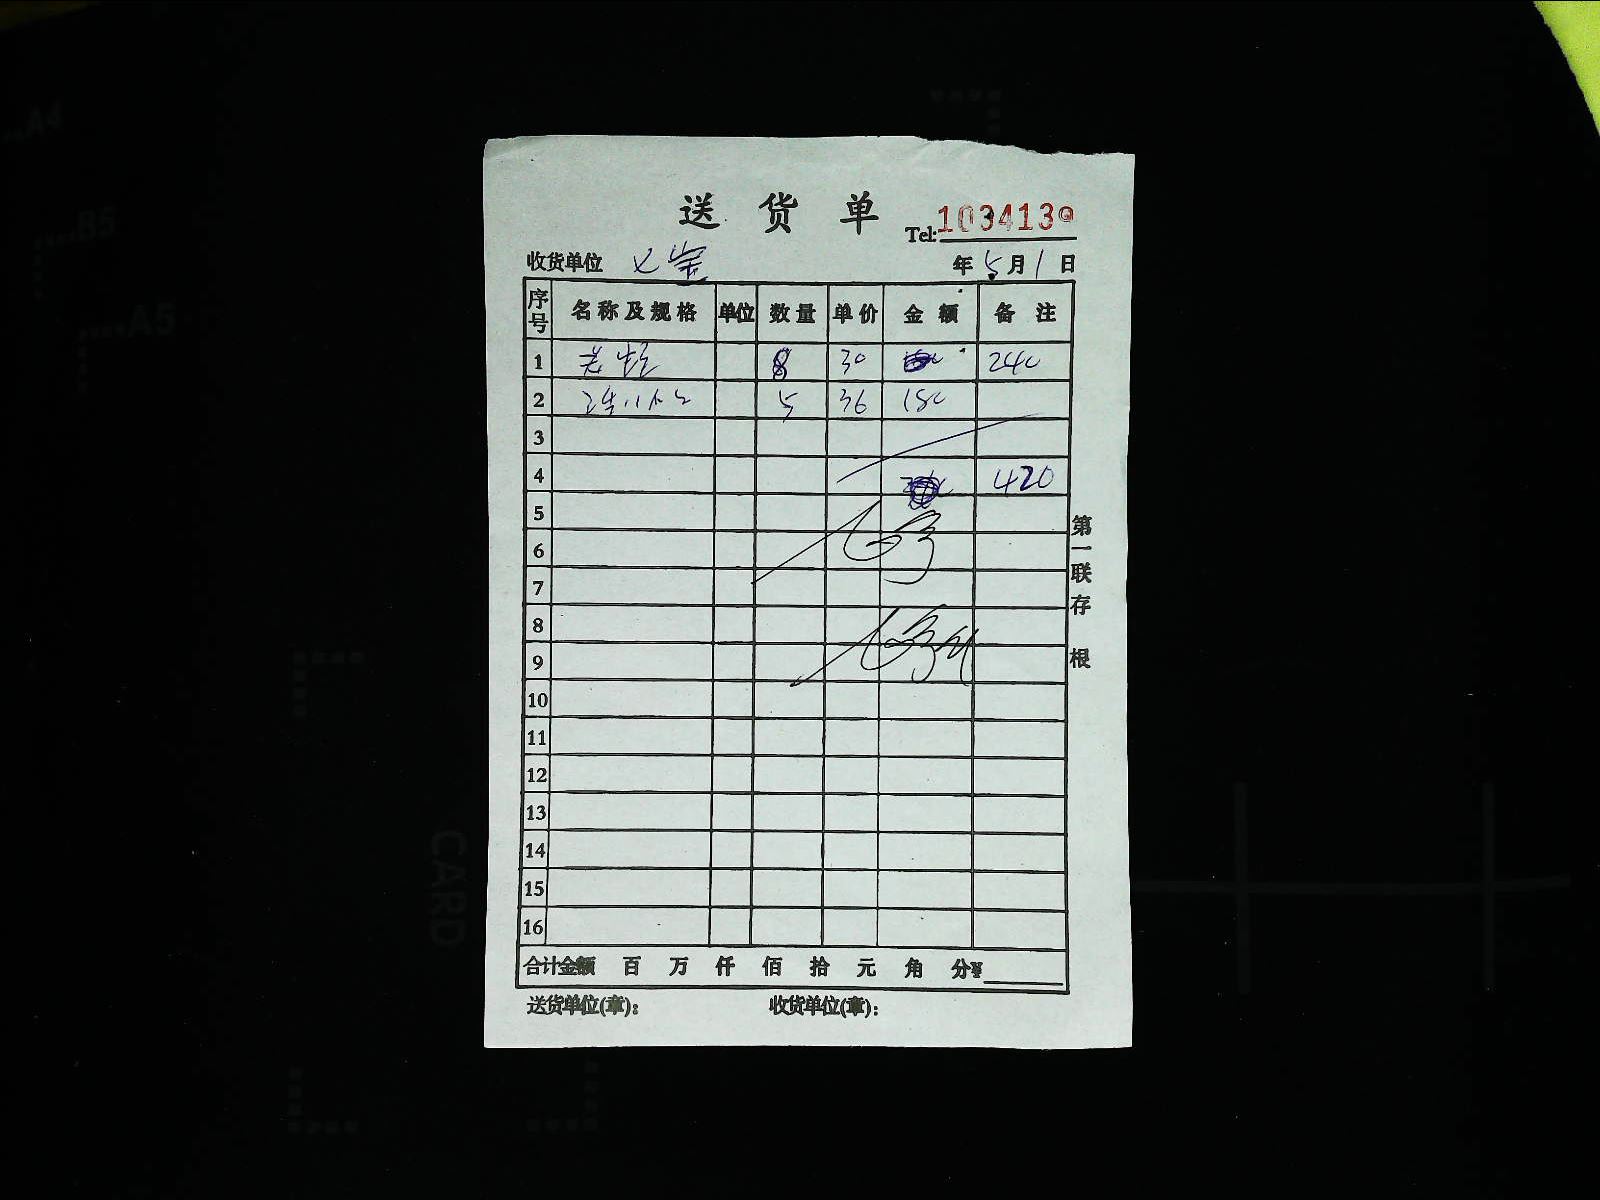 送货单
Tel: 1034139
收货单位 年5月1日
序号 名称及规格 单位 数量 单价 金额 备注
1 8 30 240
2 5 36 180
3
4 420
5
6
7
8
9
10
11
12
13
14
15
16
合计金额 百 万 仟 佰 拾 元 角 分¥
送货单位(章): 收货单位(章):
第一联存根
A4
B5
A5
CARD